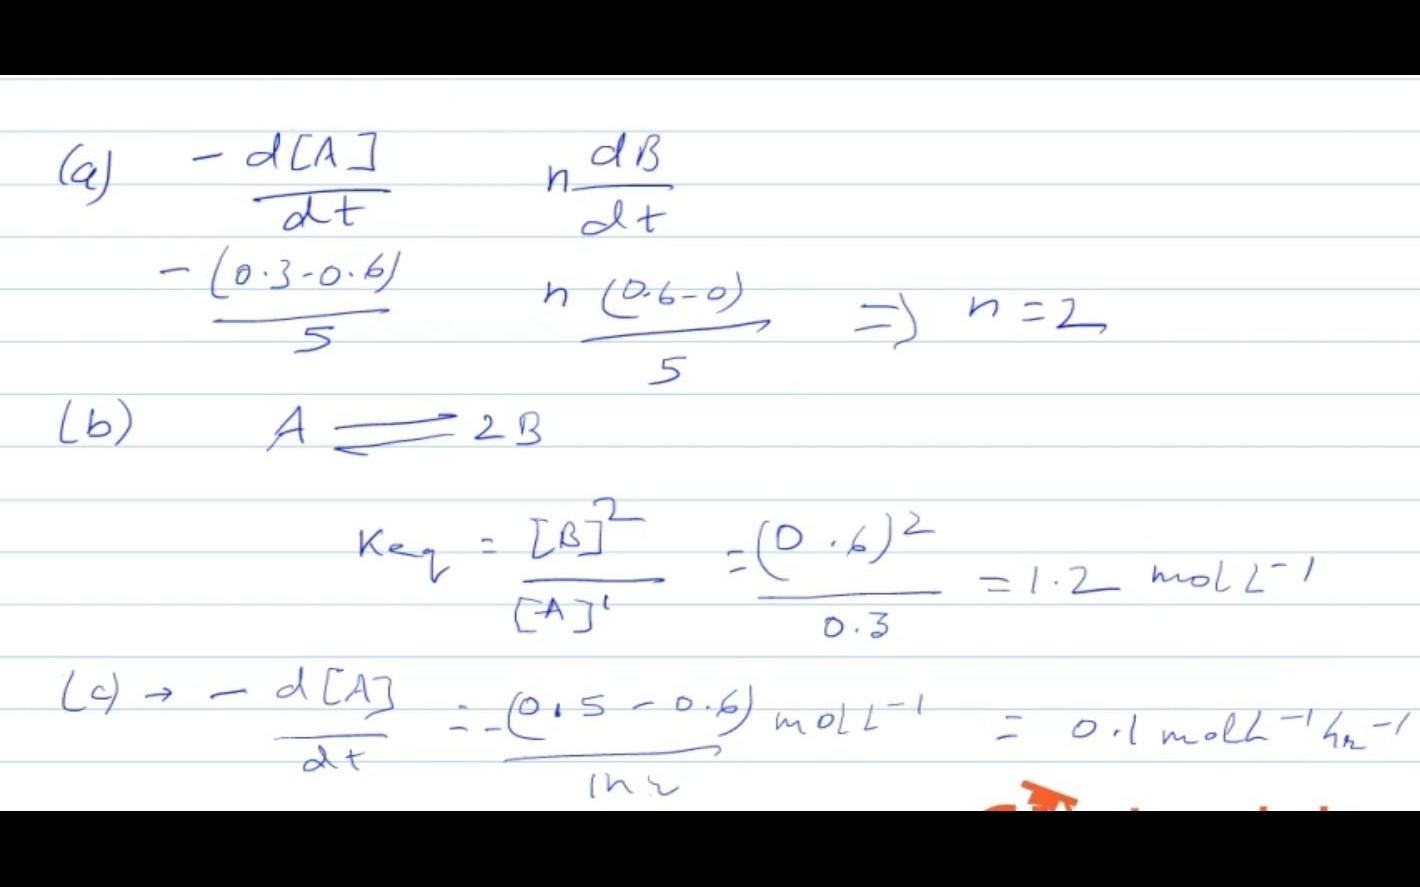 (a) - d[A]/dt n dB/dt
-(0.3-0.6)/5 n (0.6-0)/5 => n=2
(b) A ⇌ 2B
Keq = [B]²/[A]¹ = (0.6)²/0.3 = 1.2 mol L⁻¹
(c) → - d[A]/dt = -(0.5-0.6) mol L⁻¹/1hr = 0.1 mol L⁻¹ hr⁻¹